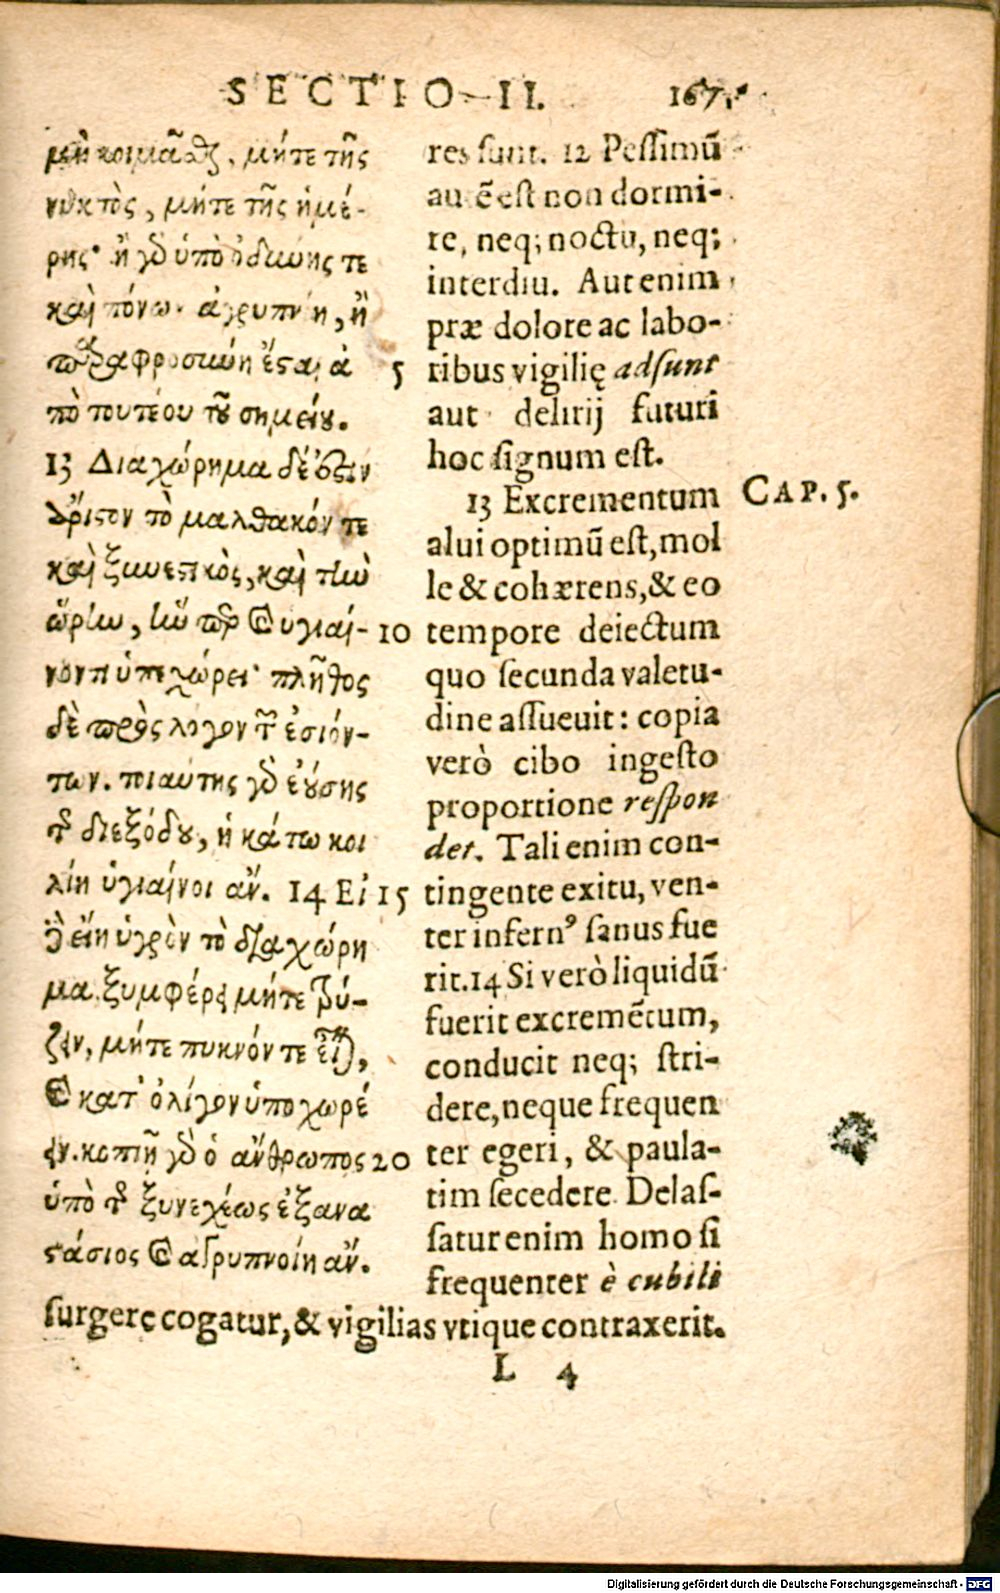 SECTIO II. 167.
μὴ κοιμᾶσθαι, μήτε τῆς
νυκτὸς, μήτε τῆς ἡμέ-
ρης· ἢ γὸ ὑπὸ ὀδύνης τε
καὶ πόνων ἀγρυπνοίη, ἢ
παραφροσύνη ἔσται ἀ
πὸ τουτέου τοῦ σημείου.
13 Διαχώρημα δέ ἐστιν
ἄριστον τὸ μαλθακόν τε
καὶ ξυνεστικὸς, καὶ τὴν
ὥρην, ἣν περ καὶ ὑγιαί-
νοντι ὑπεχώρει· πλῆθος
δὲ πρὸς λόγον τῶν ἐσιόν-
των. τοιαύτης γὸ ἐούσης
τῆς διεξόδου, ἡ κάτω κοι
λίη ὑγιαίνοι ἄν. 14 Εἰ
δὲ εἴη ὑγρὸν τὸ διαχώρη
μα ξυμφέρει μήτε τρύ-
ζειν, μήτε πυκνόν τε εἶναι,
καὶ κατ' ὀλίγον ὑποχωρέ
ειν. κοπιῇ γὸ ὁ ἄνθρωπος
ὑπὸ τῆς ξυνεχέως ἐξανα
στάσιος καὶ ἀγρυπνοίη ἄν.
5
10
15
20
res sunt. 12 Pessimũ
autẽ est non dormi-
re, neq; noctu, neq;
interdiu. Aut enim
præ dolore ac labo-
ribus vigilię adsunt
aut delirij futuri
hoc signum est.
13 Excrementum
alui optimũ est, mol
le & cohærens, & eo
tempore deiectum
quo secunda valetu-
dine assueuit: copia
verò cibo ingesto
proportione respon
det. Tali enim con-
tingente exitu, ven-
ter infernꝰ sanus fue
rit. 14 Si verò liquidũ
fuerit excremẽtum,
conducit neq; stri-
dere, neque frequen
ter egeri, & paula-
tim secedere. Delas-
satur enim homo si
frequenter è cubili
surgere cogatur, & vigilias vtique contraxerit.
CAP. 5.
L 4
Digitalisierung gefördert durch die Deutsche Forschungsgemeinschaft - DFG